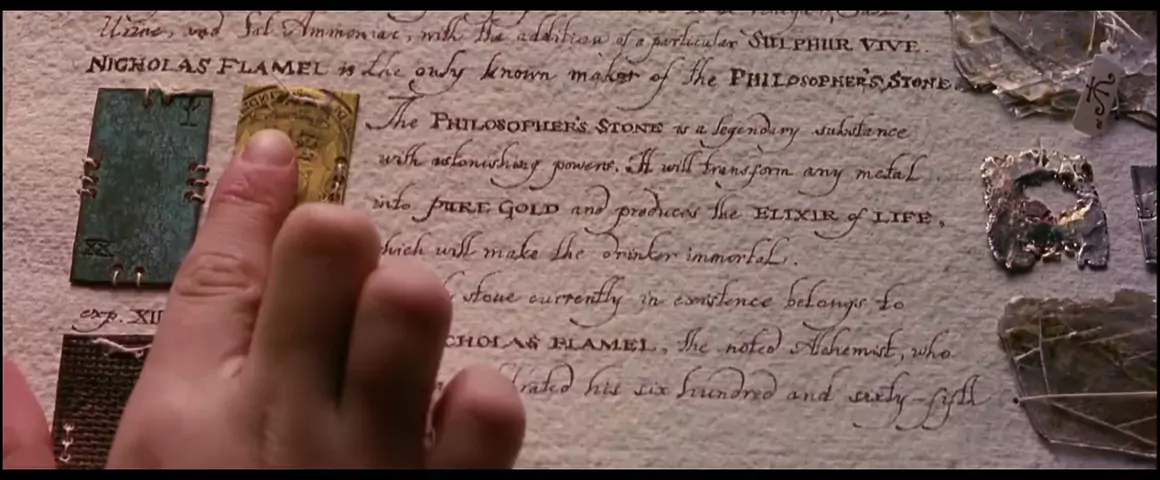 Urine, and Sal Ammoniac, with the addition of a particular SULPHUR VIVE.
NICHOLAS FLAMEL is the only known maker of the PHILOSOPHER'S STONE.
The PHILOSOPHER'S STONE is a legendary substance
with astonishing powers. It will transform any metal
into PURE GOLD and produces the ELIXIR of LIFE,
which will make the drinker immortal.
stone currently in existence belongs to
exp. XII
CHOLAS FLAMEL, the noted Alchemist, who
brated his six hundred and sixty-fifth